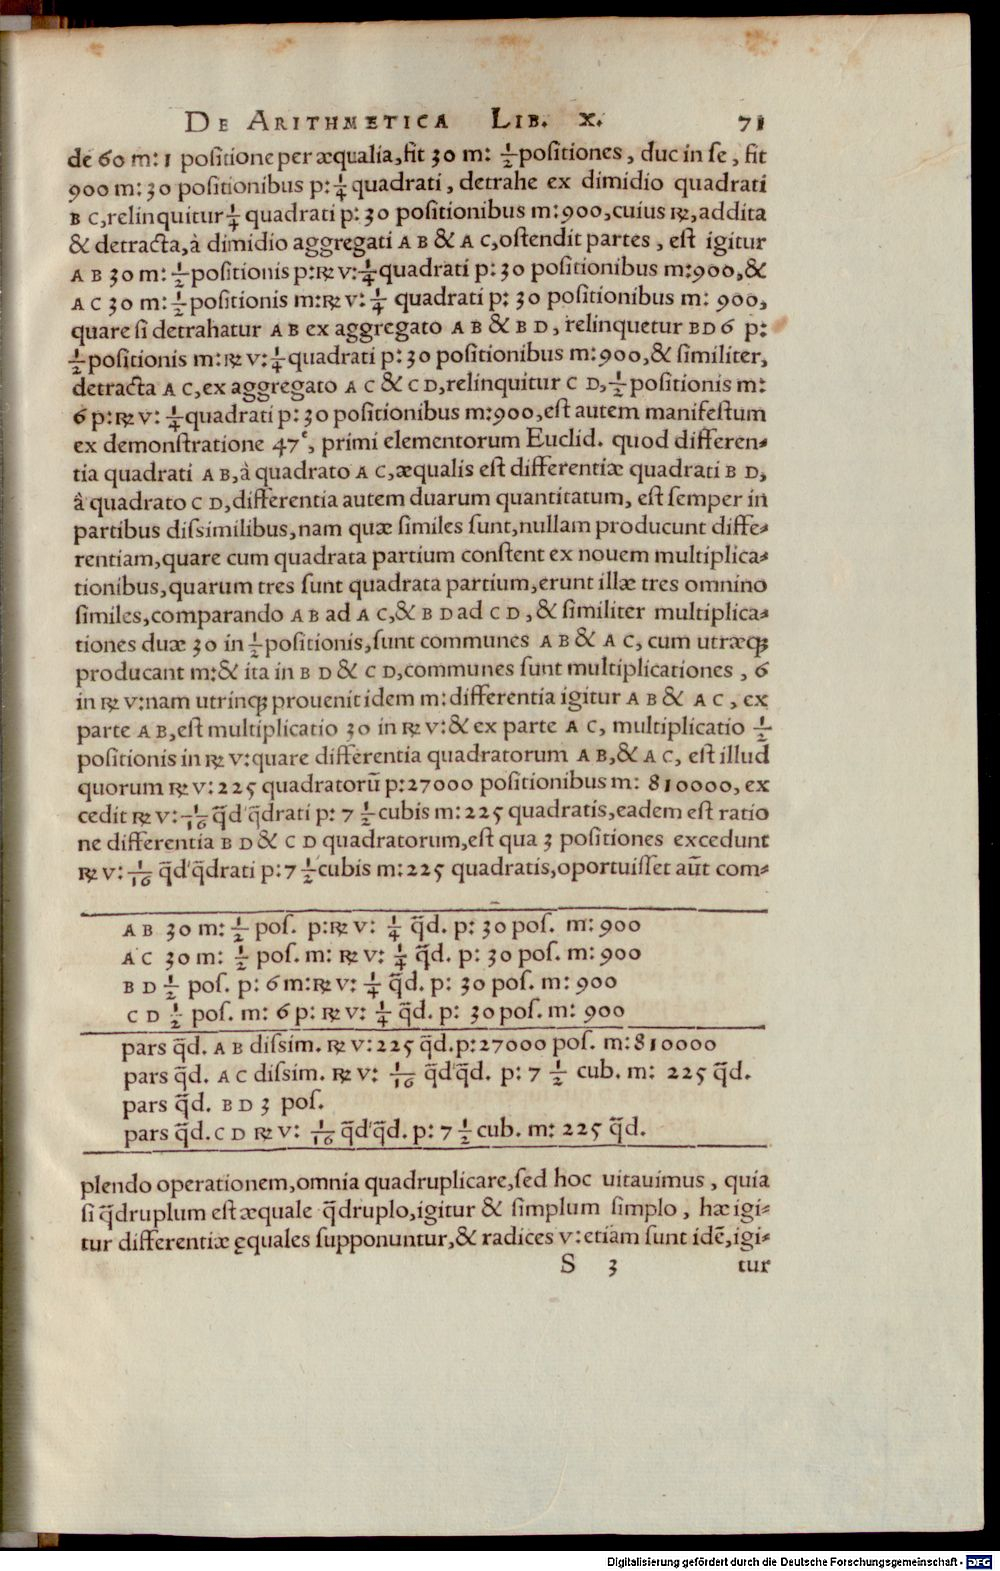 DE ARITHMETICA LIB. X. 71
de 60 m: 1 positione per æqualia, fit 30 m: 1/2 positiones, duc in se, fit
900 m: 30 positionibus p: 1/4 quadrati, detrahe ex dimidio quadrati
B C, relinquitur 1/4 quadrati p: 30 positionibus m: 900, cuius ℞, addita
& detracta, à dimidio aggregati A B & A C, ostendit partes, est igitur
A B 30 m: 1/2 positionis p: ℞ v: 1/4 quadrati p: 30 positionibus m: 900, &
A C 30 m: 1/2 positionis m: ℞ v: 1/4 quadrati p: 30 positionibus m: 900,
quare si detrahatur A B ex aggregato A B & B D, relinquetur B D 6 p:
1/2 positionis m: ℞ v: 1/4 quadrati p: 30 positionibus m: 900, & similiter,
detracta A C, ex aggregato A C & C D, relinquitur C D, 1/2 positionis m:
6 p: ℞ v: 1/4 quadrati p: 30 positionibus m: 900, est autem manifestum
ex demonstratione 47ͤ, primi elementorum Euclid. quod differen-
tia quadrati A B, à quadrato A C, æqualis est differentiæ quadrati B D,
à quadrato C D, differentia autem duarum quantitatum, est semper in
partibus dissimilibus, nam quæ similes sunt, nullam producunt diffe-
rentiam, quare cum quadrata partium constent ex nouem multiplica-
tionibus, quarum tres sunt quadrata partium, erunt illæ tres omnino
similes, comparando A B ad A C, & B D ad C D, & similiter multiplica-
tiones duæ 30 in 1/2 positionis, sunt communes A B & A C, cum utræq;
producant m: & ita in B D & C D, communes sunt multiplicationes, 6
in ℞ v: nam utrinq; prouenit idem m: differentia igitur A B & A C, ex
parte A B, est multiplicatio 30 in ℞ v: & ex parte A C, multiplicatio 1/2
positionis in ℞ v: quare differentia quadratorum A B, & A C, est illud
quorum ℞ v: 225 quadratorũ p: 27000 positionibus m: 810000, ex
cedit ℞ v: 1/16 q̃d' q̃drati p: 7 1/2 cubis m: 225 quadratis, eadem est ratio
ne differentia B D & C D quadratorum, est qua 3 positiones excedunt
℞ v: 1/16 q̃d' q̃drati p: 7 1/2 cubis m: 225 quadratis, oportuisset aũt com-
A B 30 m: 1/2 pos. p: ℞ v: 1/4 q̃d. p: 30 pos. m: 900
A C 30 m: 1/2 pos. m: ℞ v: 1/4 q̃d. p: 30 pos. m: 900
B D 1/2 pos. p: 6 m: ℞ v: 1/4 q̃d. p: 30 pos. m: 900
C D 1/2 pos. m: 6 p: ℞ v: 1/4 q̃d. p: 30 pos. m: 900
pars q̃d. A B dissim. ℞ v: 225 q̃d. p: 27000 pos. m: 810000
pars q̃d. A C dissim. ℞ v: 1/16 q̃d'q̃d. p: 7 1/2 cub. m: 225 q̃d.
pars q̃d. B D 3 pos.
pars q̃d. C D ℞ v: 1/16 q̃d'q̃d. p: 7 1/2 cub. m: 225 q̃d.
plendo operationem, omnia quadruplicare, sed hoc uitauimus, quia
si q̃druplum est æquale q̃druplo, igitur & simplum simplo, hæ igi-
tur differentiæ ęquales supponuntur, & radices v: etiam sunt idẽ, igi-
S 3 tur
Digitalisierung gefördert durch die Deutsche Forschungsgemeinschaft - DFG